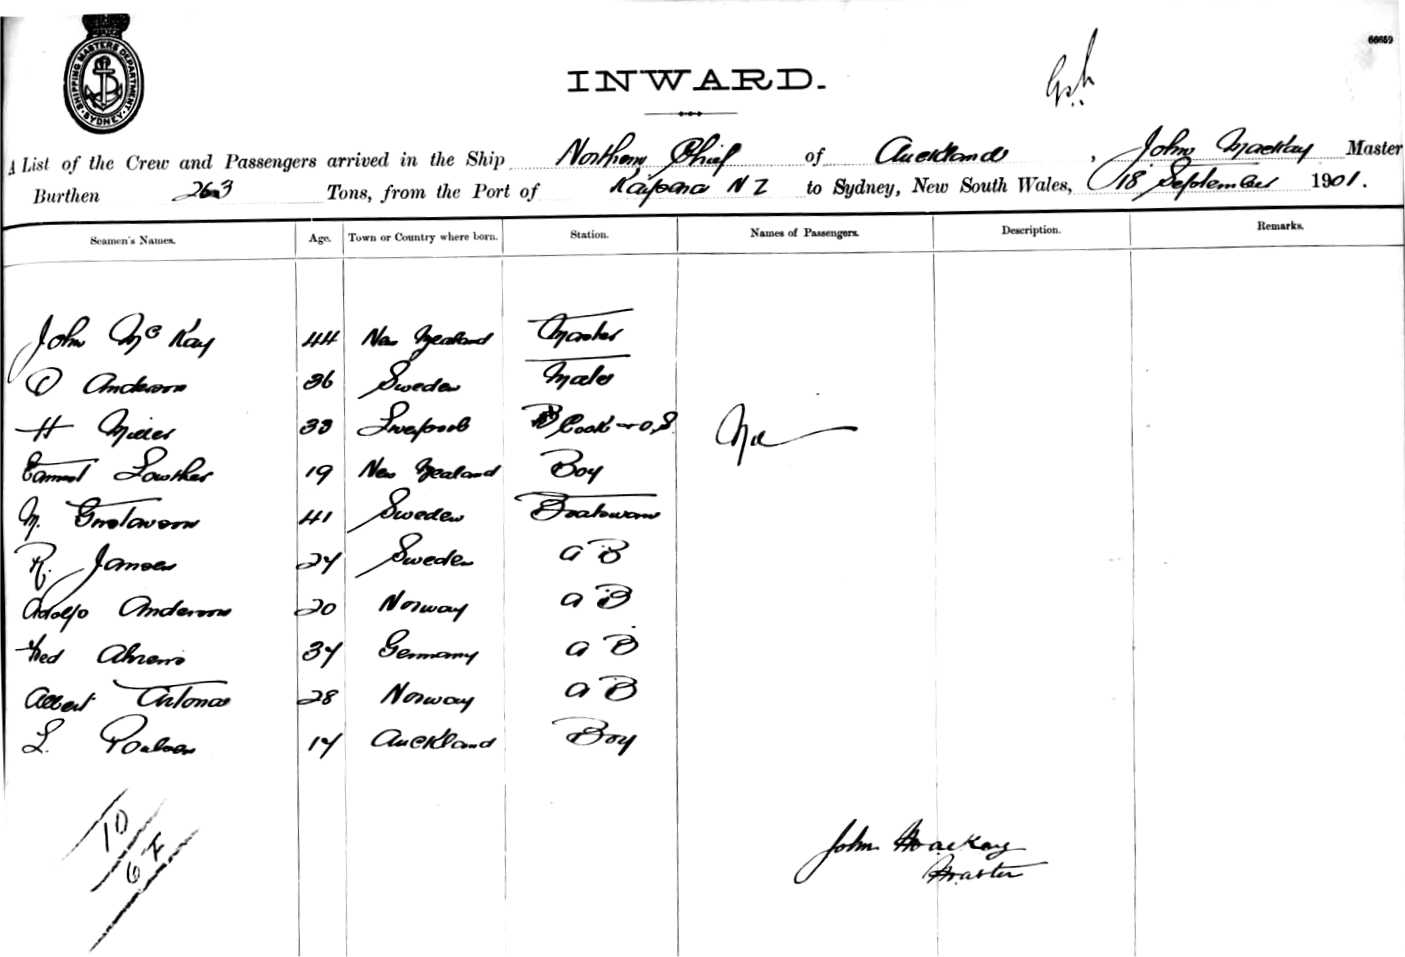 SHIPPING MASTERS DEPARTMENT
SYDNEY
66659
INWARD.
A List of the Crew and Passengers arrived in the Ship Northern Chief of Auckland, John Mackay Master
Burthen 263 Tons, from the Port of Kaipara N Z to Sydney, New South Wales, 18 September 1901.
Seamen's Names. Age. Town or Country where born. Station. Names of Passengers. Description. Remarks.
John McKay 44 New Zealand Master
O Anderson 36 Sweden Mate
H Miller 33 Liverpool Cook & O.S. Nil
Earnest Lowther 19 New Zealand Boy
N. Gustavson 41 Sweden Boatswain
R. Jansen 24 Sweden A B
Adolfo Anderson 20 Norway A B
Fred Ahrens 34 Germany A B
Albert Antonas 28 Norway A B
L. Poulsen 14 Auckland Boy
10
6 F
John Mackay
Master